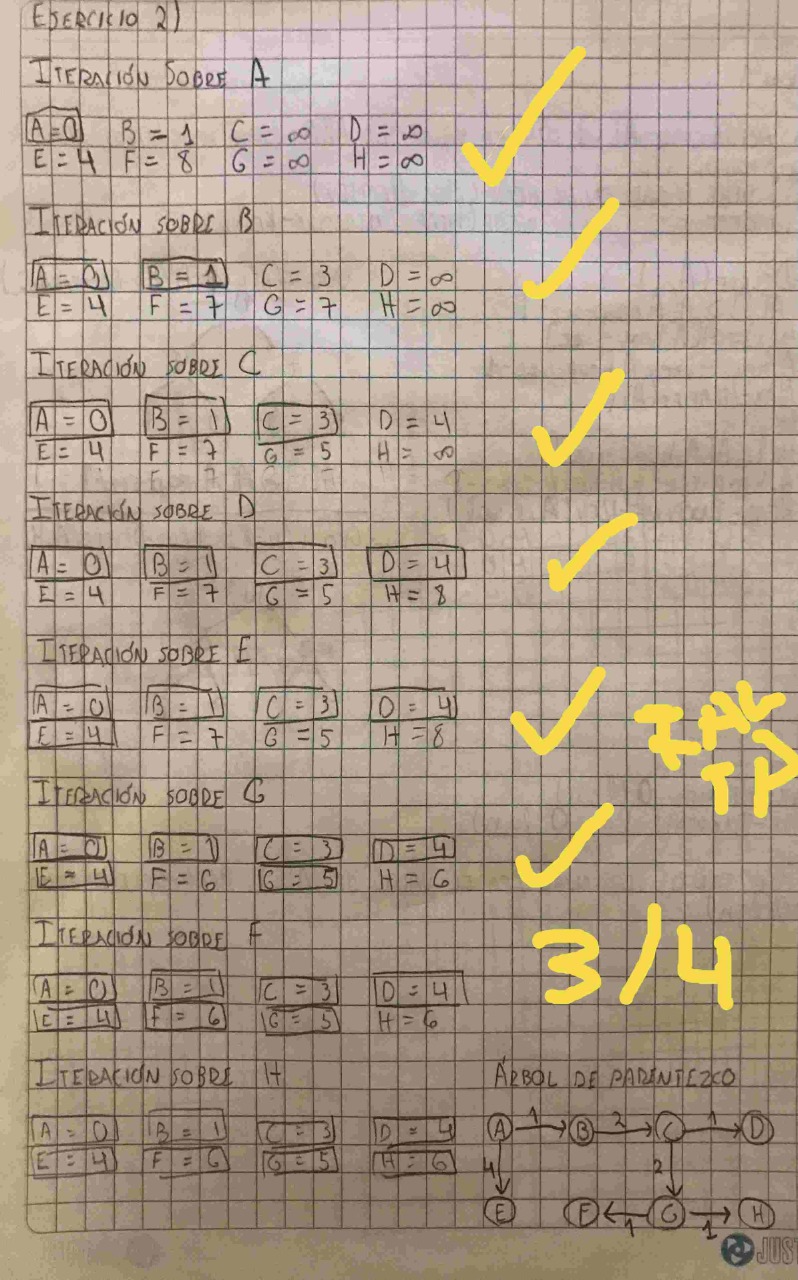 EJERCICIO 2)
ITERACIÓN SOBRE A
A=0 B = 1 C = ∞ D = ∞
E = 4 F = 8 G = ∞ H = ∞
ITERACIÓN SOBRE B
A = 0 B = 1 C = 3 D = ∞
E = 4 F = 7 G = 7 H = ∞
ITERACIÓN SOBRE C
A = 0 B = 1 C = 3 D = 4
E = 4 F = 7 G = 5 H = ∞
ITERACIÓN SOBRE D
A = 0 B = 1 C = 3 D = 4
E = 4 F = 7 G = 5 H = 8
ITERACIÓN SOBRE E
A = 0 B = 1 C = 3 D = 4
E = 4 F = 7 G = 5 H = 8
ITERACIÓN SOBRE G
A = 0 B = 1 C = 3 D = 4
E = 4 F = 6 G = 5 H = 6
ITERACIÓN SOBRE F
A = 0 B = 1 C = 3 D = 4
E = 4 F = 6 G = 5 H = 6
3/4
ITERACIÓN SOBRE H
A = 0 B = 1 C = 3 D = 4
E = 4 F = 6 G = 5 H = 6
ÁRBOL DE PARENTEZCO
A 1 B 2 C 1 D
4 2
E F 1 G 1 H
JUS